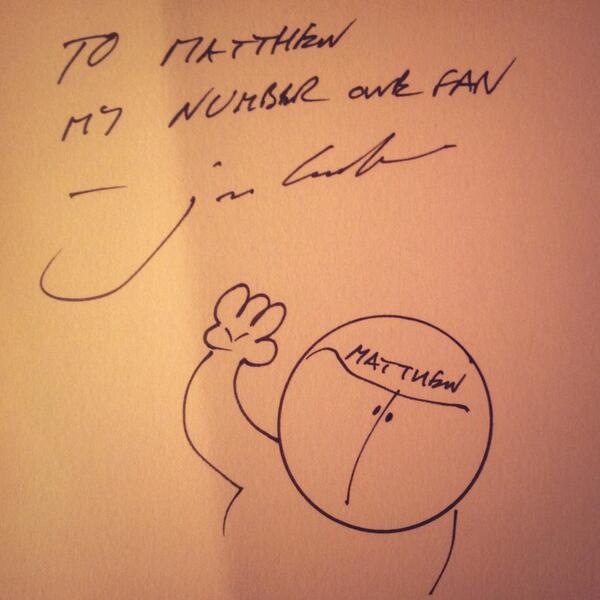 TO MATTHEW
MY NUMBER ONE FAN
MATTHEW